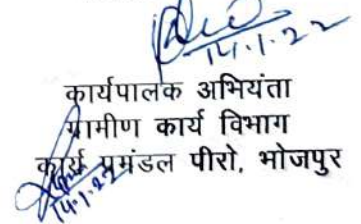 14.1.22
कार्यपालक अभियंता
ग्रामीण कार्य विभाग
कार्य प्रमंडल पीरो, भोजपुर
14.1.22